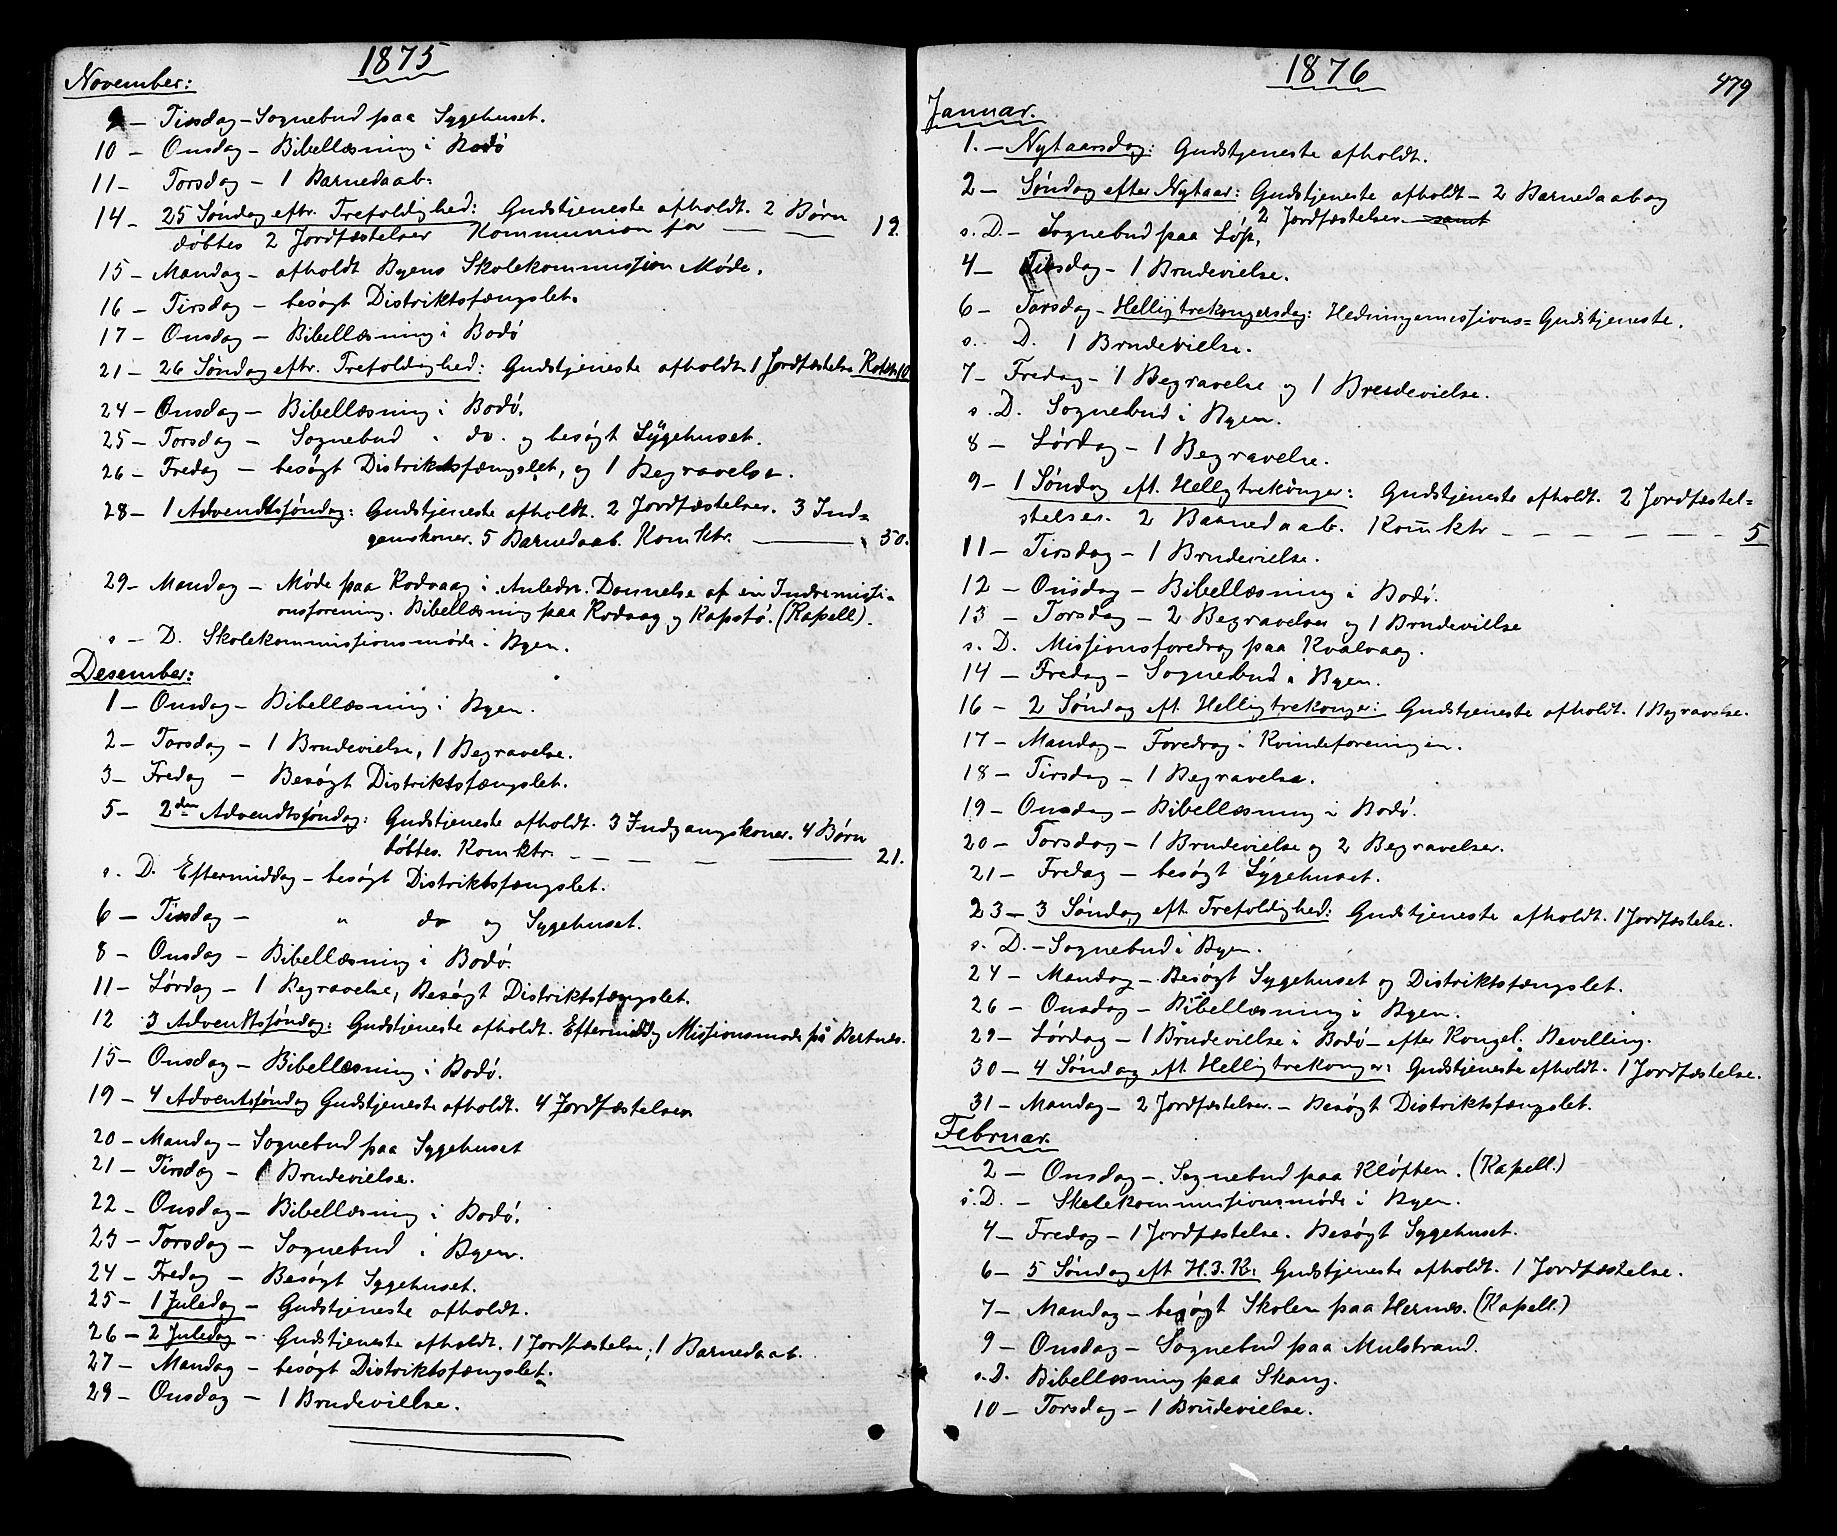 1875
November:
9 – Tirsdag – Sognebud paa Sygehuset.
10 – Onsdag – Bibellæsning i Bodö
11 – Torsdag – 1 Barnedaab.
14 – 25 Söndag eftr. Trefoldighed: Gudstjeneste afholdt. 2 Börn
döbtes 2 Jordfæstelser Kommunion for — — 12.
15 – Mandag – afholdt Byens Skolekommission Möde.
16 – Tirsdag – besögt Distriktsfængslet.
17 – Onsdag – Bibellæsning i Bodö
21 – 26 Söndag eftr. Trefoldighed: Gudstjeneste afholdt. 1 Jordfæstelse Komktr. 10
24 – Onsdag – Bibellæsning i Bodö.
25 – Torsdag – Sognebud i do. og besögt Sygehuset.
26 – Fredag – besögt Distriktsfængslet, og 1 Begravelse.
28 – 1 Adventssöndag: Gudstjeneste afholdt. 2 Jordfæstelser. 3 Ind=
gangskoner. 5 Barnedaab. Komktr. — 50.
29 – Mandag – Möde paa Kodvaag i Anledn. Dannelse af en Indremissi=
onsforening. Bibellæsning paa Kodvaag og Kapstö. (Kapell).
s – D. Skolekommissionsmöde i Byen.
Desember:
1 – Onsdag – Bibellæsning i Byen.
2 – Torsdag – 1 Brudevielse, 1 Begravelse.
3 – Fredag – Besögt Distriktsfængslet.
5 – 2den Adventssöndag: Gudstjeneste afholdt. 3 Indgangskoner. 4 Börn
döbtes. Komktr. – – – — — 21.
s. D. Eftermiddag – besögt Distriktsfængslet.
6 – Tirsdag – " do og Sygehuset.
8 – Onsdag – Bibellæsning i Bodö.
11 – Lördag – 1 Begravelse, Besögt Distriktsfængslet.
12 3 Adventssöndag: Gudstjeneste afholdt. Eftermiddg Missionsmöde på Bertnes.
15 – Onsdag – Bibellæsning i Bodö.
19 – 4 Adventssöndag Gudstjeneste afholdt. 4 Jordfæstelser
20 – Mandag – Sognebud paa Sygehuset
21 – Tirsdag – 1 Brudevielse.
22 – Onsdag – Bibellæsning i Bodö.
23 – Torsdag – Sognebud i Byen.
24 – Fredag – Besögt Sygehuset.
25 – 1 Juledag – Gudstjeneste afholdt.
26 – 2 Juledag – Gudstjeneste afholdt. 1 Jordfæstelse; 1 Barnedaab.
27 – Mandag – besögt Distriktsfængslet.
29 – Onsdag – 1 Brudevielse.
1876
479
Januar.
1. – Nytaarsdag: Gudstjeneste afholdt.
2 – Söndag efter Nytaar: Gudstjeneste afholdt – 2 Barnedaab og
2 Jordfæstelser samt
s. D. – Sognebud paa Löp.
4 – Tirsdag – 1 Brudevielse.
6 – Torsdag – Helligtrekongersdag: Hedningemissions=Gudstjeneste.
s. D. 1 Brudevielse.
7 – Fredag – 1 Begravelse og 1 Brudevielse.
s. D. Sognebud i Byen.
8 – Lördag – 1 Begravelse.
9 – 1 Söndag eft. Helligtrekonger: Gudstjeneste afholdt. 2 Jordfæstel=
stelser. 2 Barnedaab. Komktr – – – – – – 5
11 – Tirsdag – 1 Brudevielse.
12 – Onsdag – Bibellæsning i Bodö.
13 – Torsdag – 2 Begravelser og 1 Brudevielse
s. D. Missionsforedrag paa Kvalvaag.
14 – Fredag – Sognebud i Byen.
16 – 2 Söndag eft. Helligtrekonger: Gudstjeneste afholdt. 1 Begravelse.
17 – Mandag – Foredrag i Kvindeforeningen.
18 – Tirsdag – 1 Begravelse.
19 – Onsdag – Bibellæsning i Bodö.
20 – Torsdag – 1 Brudevielse og 2 Begravelser.
21 – Fredag – besögt Sygehuset.
23 – 3 Söndag eft. Trefoldighed: Gudstjeneste afholdt. 1 Jordfæstelse.
s. D. – Sognebud i Byen.
24 – Mandag – Besögt Sygehuset og Distriktsfængslet.
26 – Onsdag – Bibellæsning i Byen.
29 – Lördag – 1 Brudevielse i Bodö – efter Kongel. Bevilling.
30 – 4 Söndag eft. Helligtrekonger: Gudstjeneste afholdt. 1 Jordfæstelse.
31 – Mandag – 2 Jordfæstelser. – Besögt Distriktsfængslet.
Februar.
2 – Onsdag – Sognebud paa Klöften. (Kapell.)
s. D. – Skolekommissionsmöde i Byen.
4 – Fredag – 1 Jordfæstelse. Besögt Sygehuset.
6 – 5 Söndag eft H. 3. K: Gudstjeneste afholdt. 1 Jordfæstelse.
7 – Mandag – besögt Skolen paa Hernes. (Kapell.)
9 – Onsdag – Sognebud paa Mulstrand.
s. D. Bibellæsning paa Skaug.
10 – Torsdag – 1 Brudevielse.